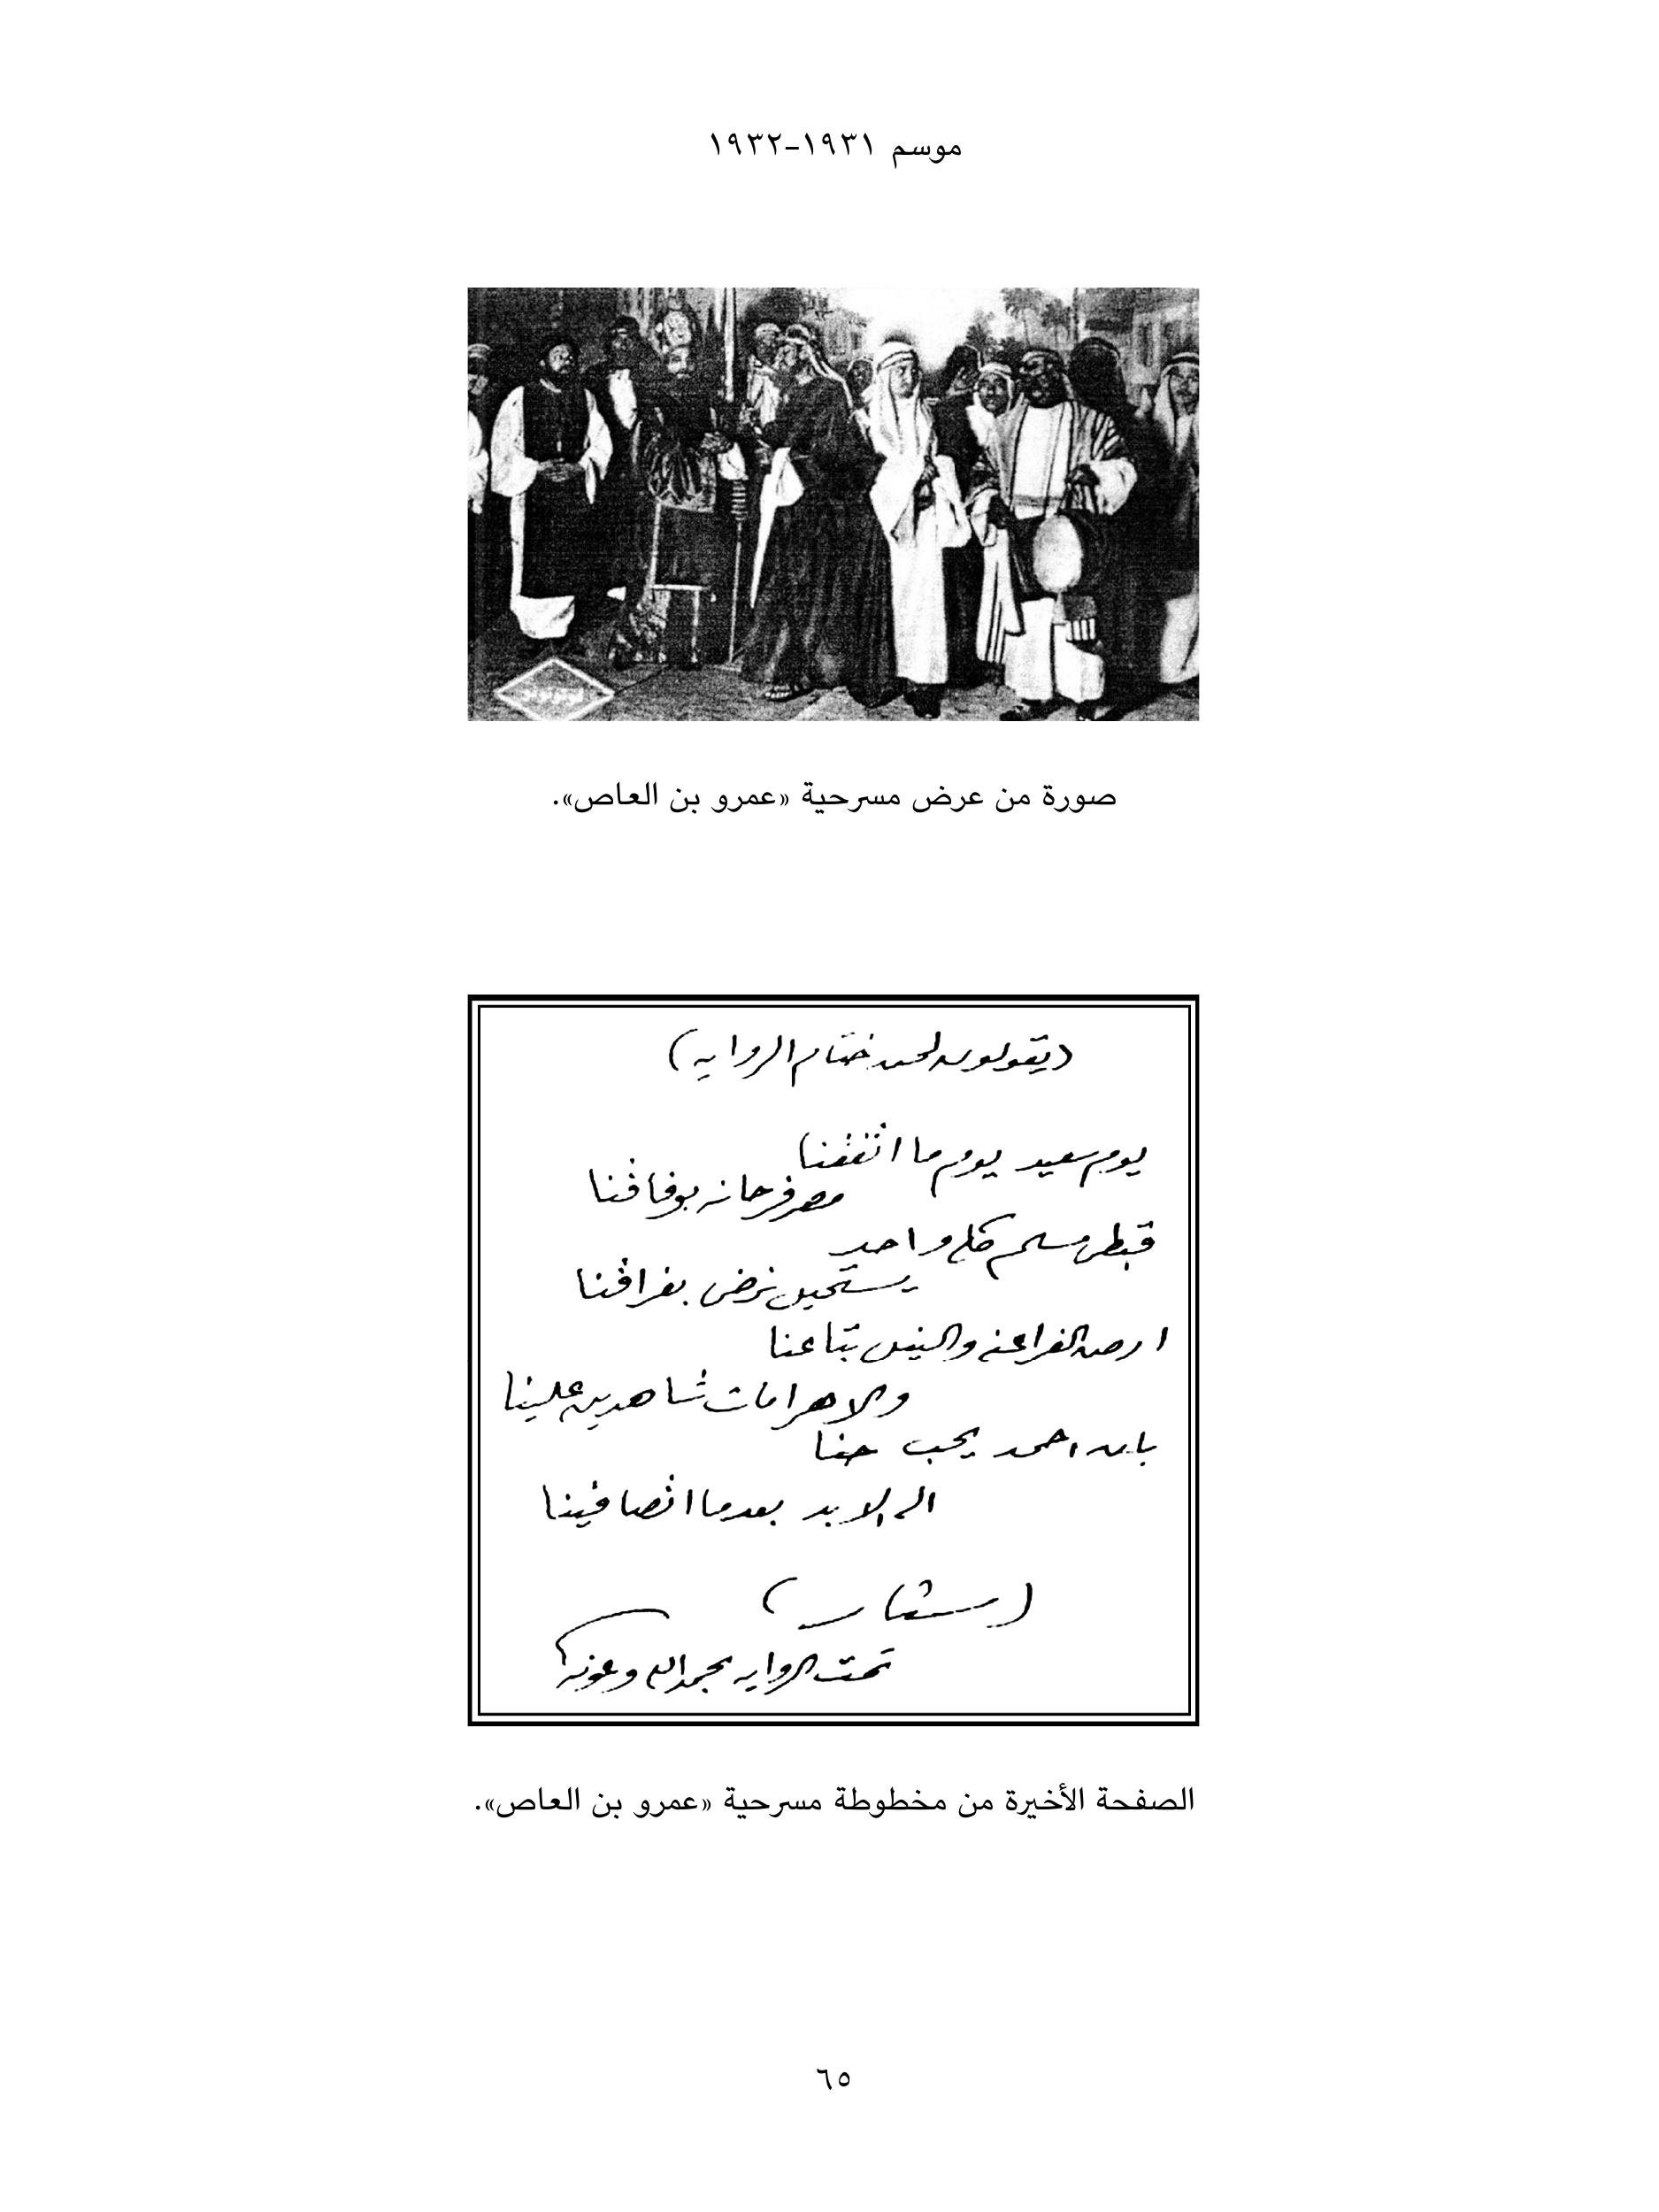 موسم ١٩٣١-١٩٣٢
صورة من عرض مسرحية «عمرو بن العاص».
(يقولون لحن ختام الرواية)
يوم سعيد يوم ما اتفقنا
مصر فرحانه بوفاقنا
قبطي ومسلم كله واحد
يستحيل نرضى بفراقنا
ارض الفراعنه والنيل بتاعنا
والاهرامات شاهدين علينا
بان احمد يحب حنا
الى الابد بعدما اتصافينا
(ستار)
تمت الرواية بحمد الله وعونه
الصفحة الأخيرة من مخطوطة مسرحية «عمرو بن العاص».
٦٥